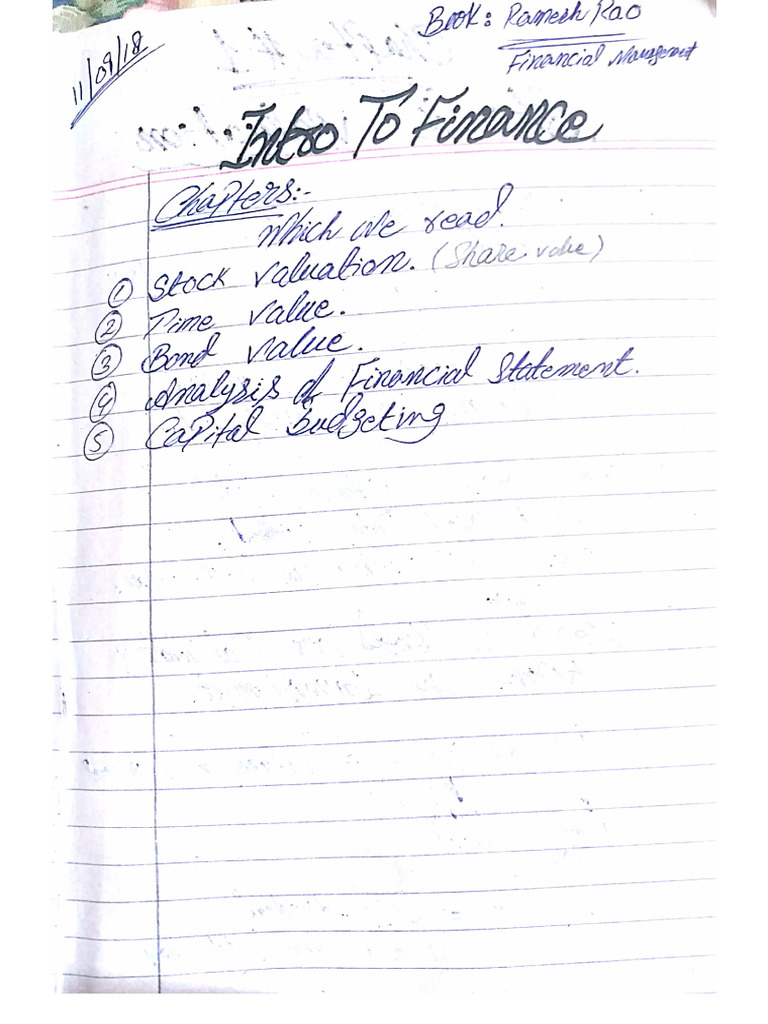 Book: Ramesh Rao
Financial Management
11/09/18
Intro To Finance
Chapters:-
Which we read.
① Stock valuation. (Share value)
② Time value.
③ Bond value.
④ Analysis of Financial Statement.
⑤ Capital budgeting